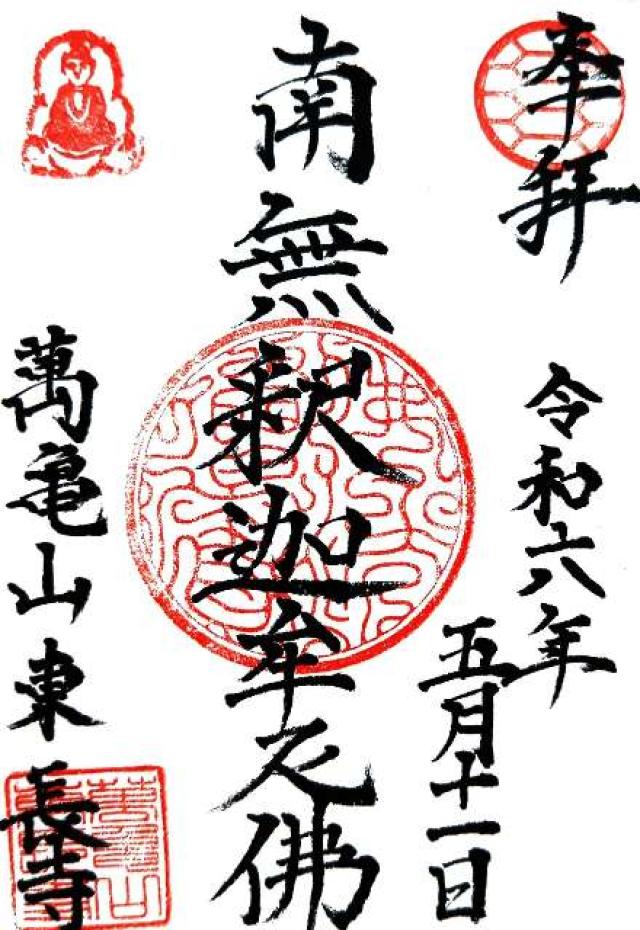 奉拝
令和六年
五月十一日
南無釈迦牟尼佛
萬亀山東長寺
萬亀山